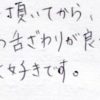 頂いてから、
の舌ざわりが良
好きです。